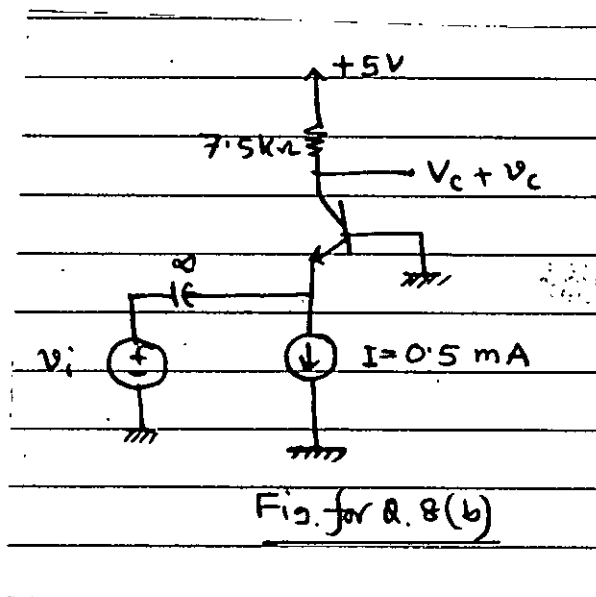 +5V
7.5KΩ
Vc + vc
∞
vi
+
-
I = 0.5 mA
Fig. for Q. 8(b)